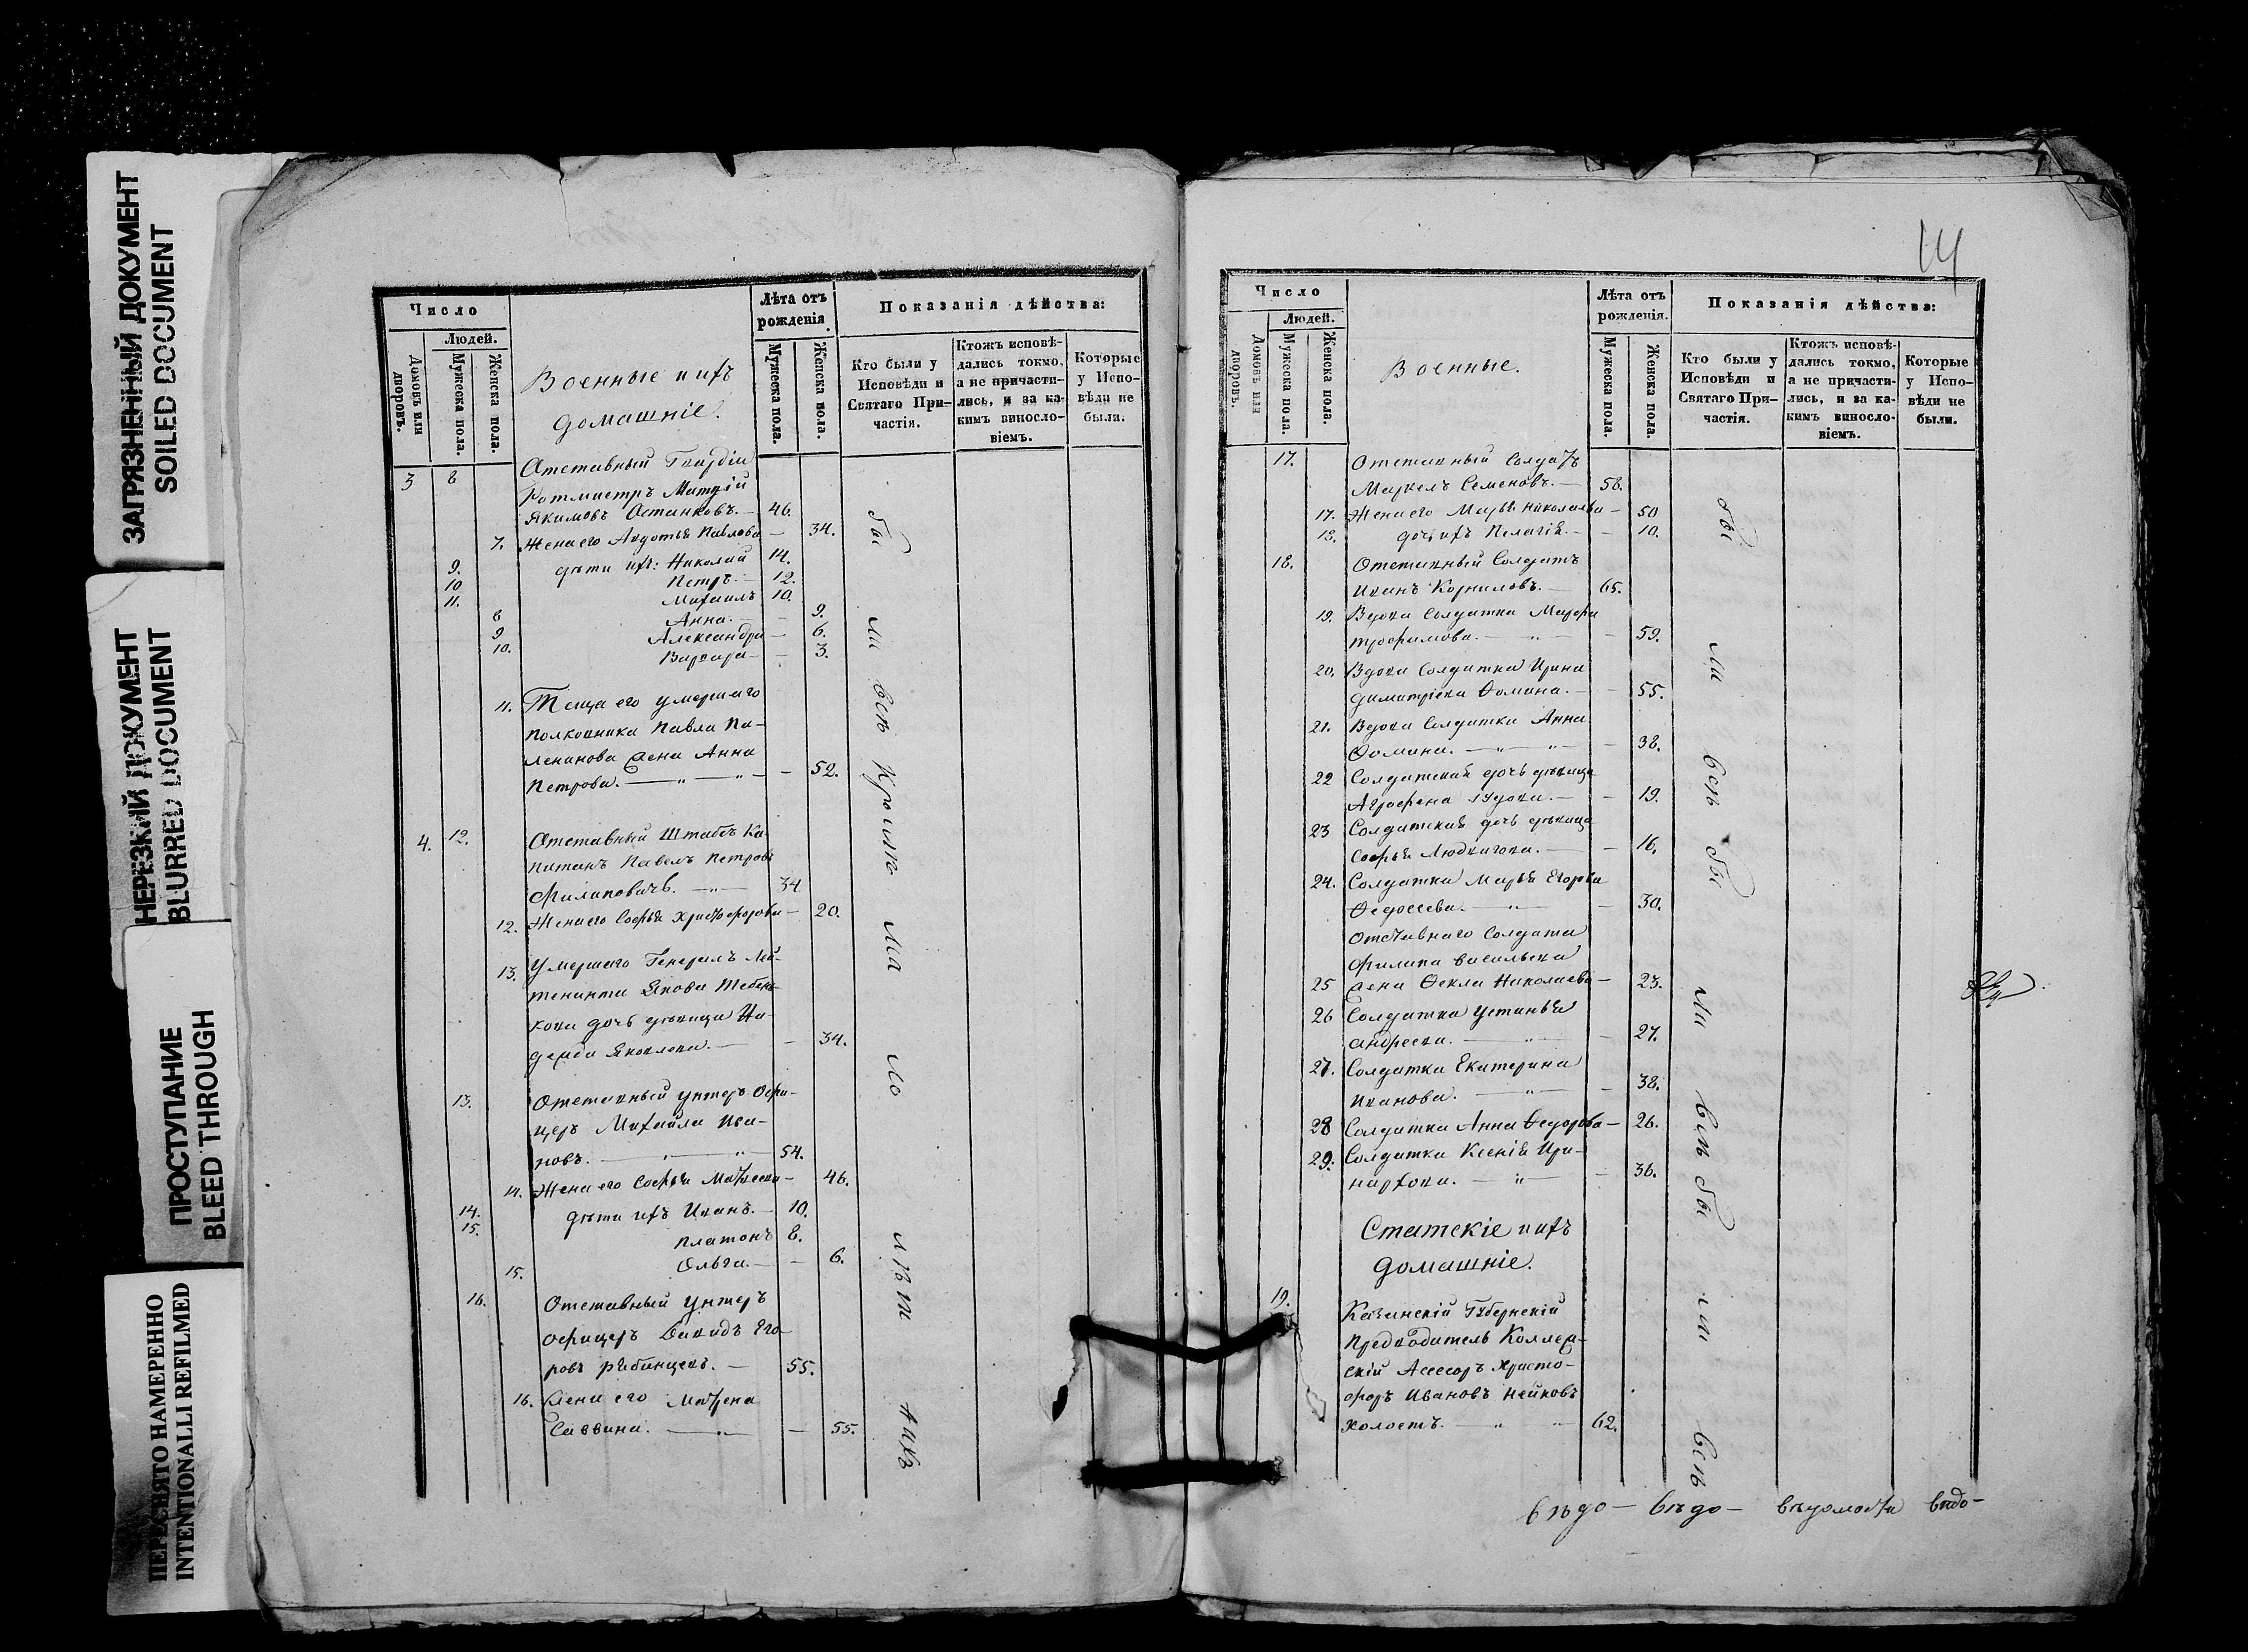 ЗАГРЯЗНЕННЫЙ ДОКУМЕНТ
SOILED DOCUMENT
НЕРЕЗКИЙ ДОКУМЕНТ
BLURRED DOCUMENT
ПРОСТУПАНИЕ
BLEED THROUGH
ПЕРЕСНЯТО НАМЕРЕННО
INTENTIONALLI REFILMED
Число
Людей.
Домовъ или дворовъ.
Мужеска пола.
Женска пола.
Военные и ихъ
домашніе.
Лѣта отъ
рожденія
Мужеска пола.
Женска пола.
Показанія дѣйства:
Кто были у
Исповѣди и
Святаго При-
частія.
Ктожъ исповѣ-
дались токмо,
а не причасти-
лись, и за ка-
кимъ винослo-
віемъ.
Которые
у Испо-
вѣди не
были.
3 8 Отставный Гвардіи
Ротмистръ
Якимовъ Останковъ. — 46.
7. Жена его Авдотья Павлова — 34.
9. дѣти ихъ: Николай 14.
10 Петръ. — 12.
11. Михаилъ 10.
8 Анна. — 9.
9 Александра — 6.
10. Варвара — 3.
11. Теща его умершаго
полковника Павла
жена Анна
Петрова. — 52.
4. 12. Отставный Штабсъ Ка-
питанъ Павелъ Петровъ
Филиповичъ. — 34
12. Жена его Софья Христофорова — 20.
13. Умершаго Генералъ Лей-
тенанта Якова
дочь дѣвица На-
дежда Яковлева. — 34.
13. Отставный унтеръ Офи-
церъ Михайла Ива-
новъ. — 54.
14. Жена его Софья Матвеева — 46.
14. дѣти ихъ Иванъ. — 10.
15. Платонъ 8.
15. Ольга. — 6.
16. Отставный Унтеръ
офицеръ Давидъ Его-
ровъ — 55.
16. Жена его Матрена
Саввина. — 55.
14
Число
Людей.
Домовъ или дворовъ.
Мужеска пола.
Женска пола.
Военные.
Лѣта отъ
рожденія.
Мужеска пола.
Женска пола.
Показанія дѣйства:
Кто были у
Исповѣди и
Святаго При-
частія.
Ктожъ исповѣ-
дались токмо,
а не причасти-
лись, и за ка-
кимъ винослo-
віемъ.
Которые
у Испо-
вѣди не
были.
17. Отставный Солдатъ
Маркелъ Семеновъ. — 58.
17. Жена его Марья Николаева — 50
18. дочь ихъ Пелагія. — 10.
18. Отставный Солдатъ
Иванъ Корниловъ. — 65.
19. Вдова Солдатка Марфа
Трофимова. — 59.
20. Вдова Солдатка Ирина
Димитріева Ѳомина. — 55.
21. Вдова Солдатка Анна
Ѳомина. — 38.
22 Солдатская дочь дѣвица
Агрофена — 19.
23 Солдатская дочь дѣвица
Софья — 16.
24. Солдатка Марья Егорова
Ѳедосеева. — 30.
Отставнаго Солдата
Филипа Васильева
25 жена Ѳекла Николаева — 23.
26 Солдатка Устинья
Андреева. — 27.
27. Солдатка Екатерина
Иванова. — 38.
28 Солдатка Анна Ѳедорова — 26.
29. Солдатка Ксенія Ири-
нархова. — 36.
Статскіе и ихъ
домашніе.
19. Казанскій Губернскій
Предводитель Коллеж-
скій Асесоръ Христо-
форъ Ивановъ
холостъ. — 62.
вѣдо— вѣдо— вѣдомости вѣдо—